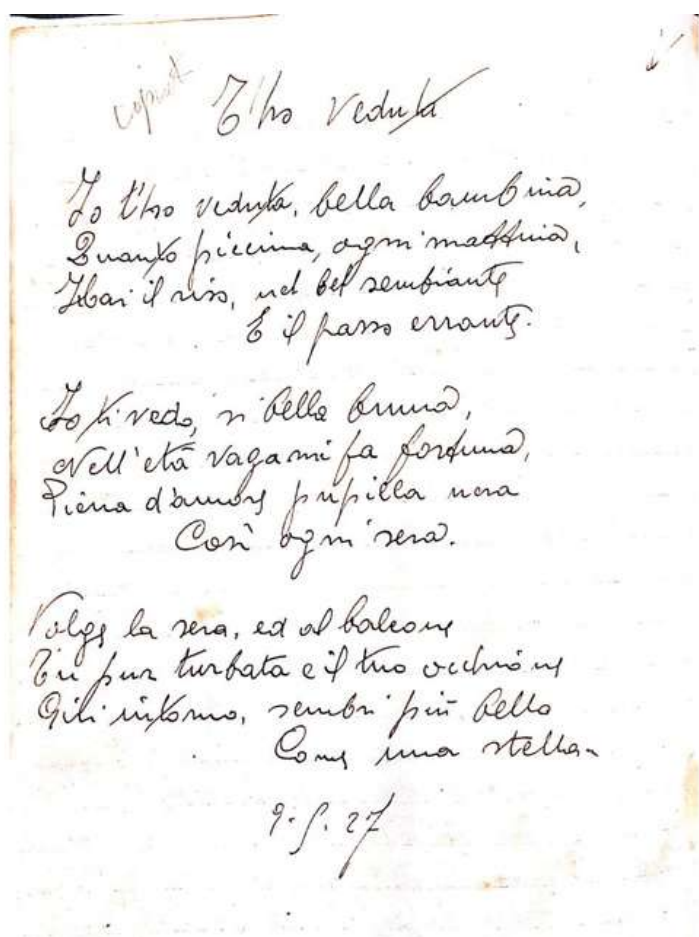 T'ho veduta
Io t'ho veduta, bella bambina,
Quanto piccina, ogni mattina,
Hai il riso, nel bel sembiante
E il passo errante.
Io ti vedo, si bella bruna,
Nell'età vaga mi fa fortuna,
Piena d'amore pupilla nera
Così ogni sera.
Volge la sera, ed al balcone
Tu pur turbata e il tuo occhione
Giri intorno, sembri più bella
Come una stella
9.5.27